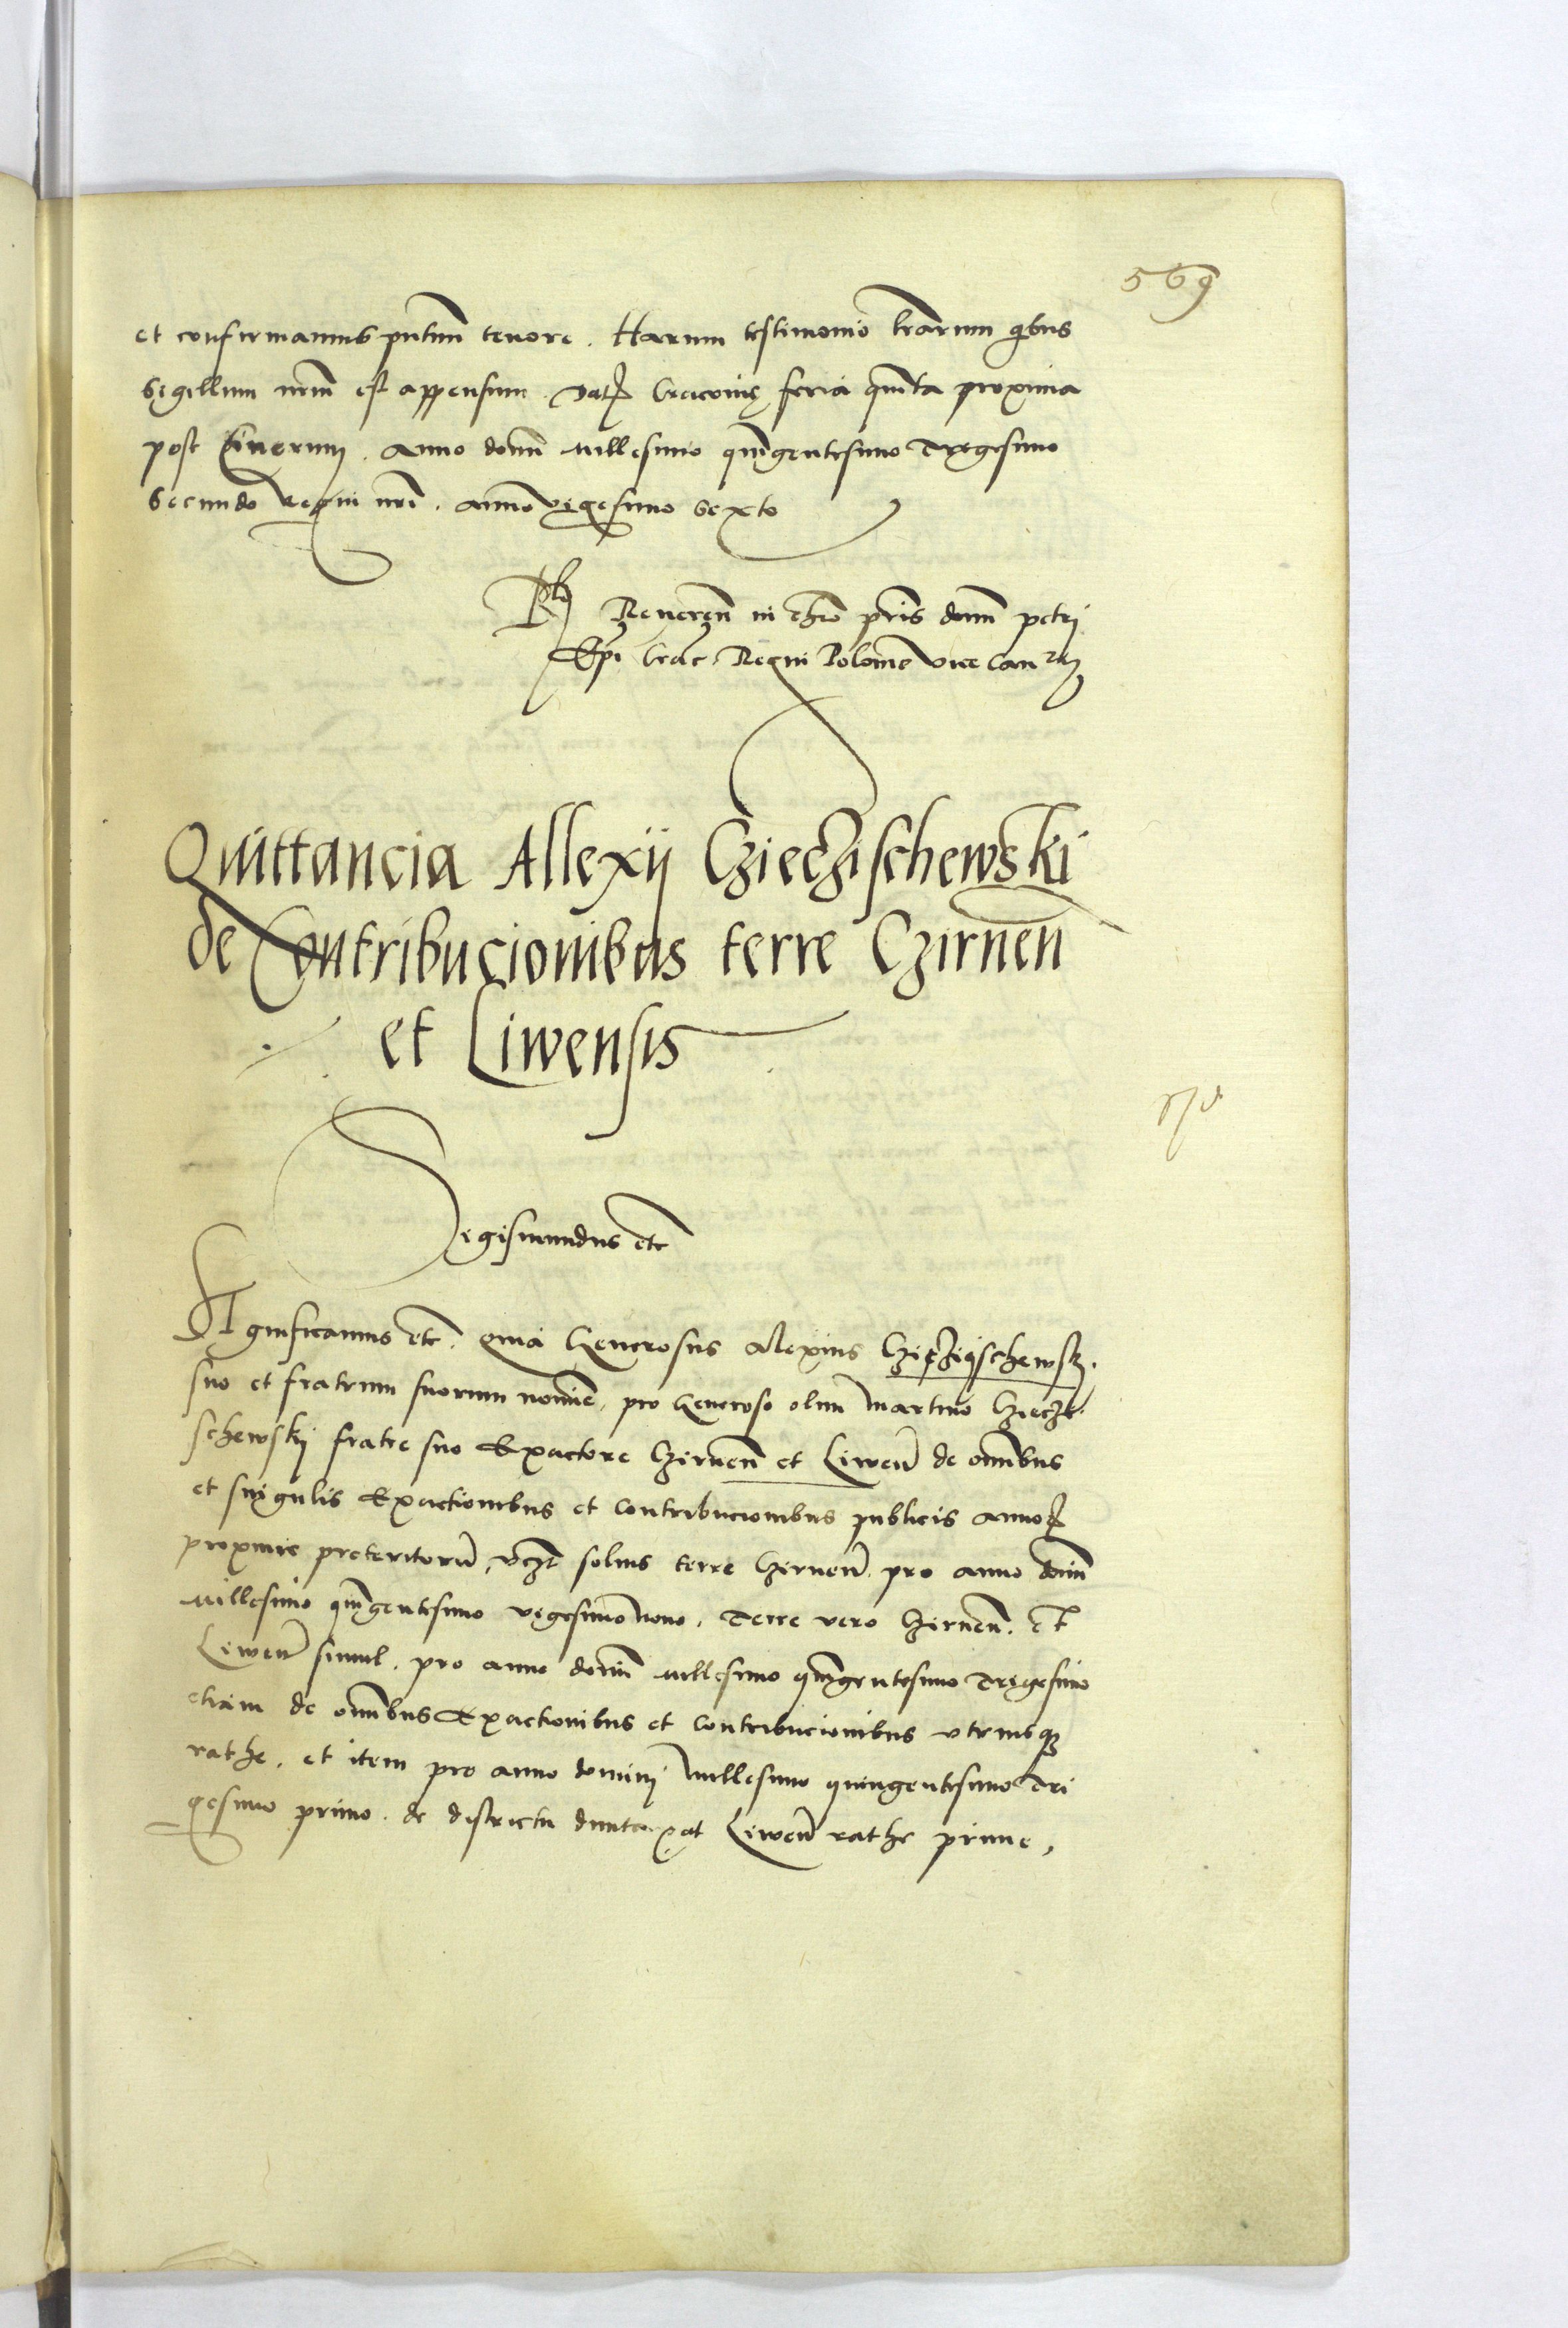 569
et confirmamus pntium tenore. Harum testimonio lrarum qbus
Sigillum nrm est appensum. Dat Cracovię feria quinta proxima
post Cinerum. Anno domi Millesimo quingentesimo Trigesimo
Secundo Regni nri. anno vigesimo Sexto
Rlo Reveren in chro pris domi petri
Epi Crac. Regni Polonie vice Can
Quittancia Allexii Cziechischewski
de Contribucionibus terre Czirnen
et Liwensis
Sigismundus etc
Significamus etc. quia Generosus Alexius
suo et fratrum suorum nomine, pro Generoso olim Martino Cziechi
schewskij fratre suo Exactore Czirnen et Liwen de omnibus
et singulis Exactionibus et contribucionibus publicis Anno
proxime preteritoru, vczt solius terre Czirnen pro anno domi
Millesimo quingentesimo vigesimonono. Terre vero Czirnen. Et
Liwen simul. pro anno domi Millesimo quingentesimo Trigesimo
etiam de omnibus Exactionibus et contribucionibus vtriusq
rathe. et item pro anno dominij Millesimo quingentesimo Tri
gesimo primo. de districtu duntaxat Liwen rathe prime,